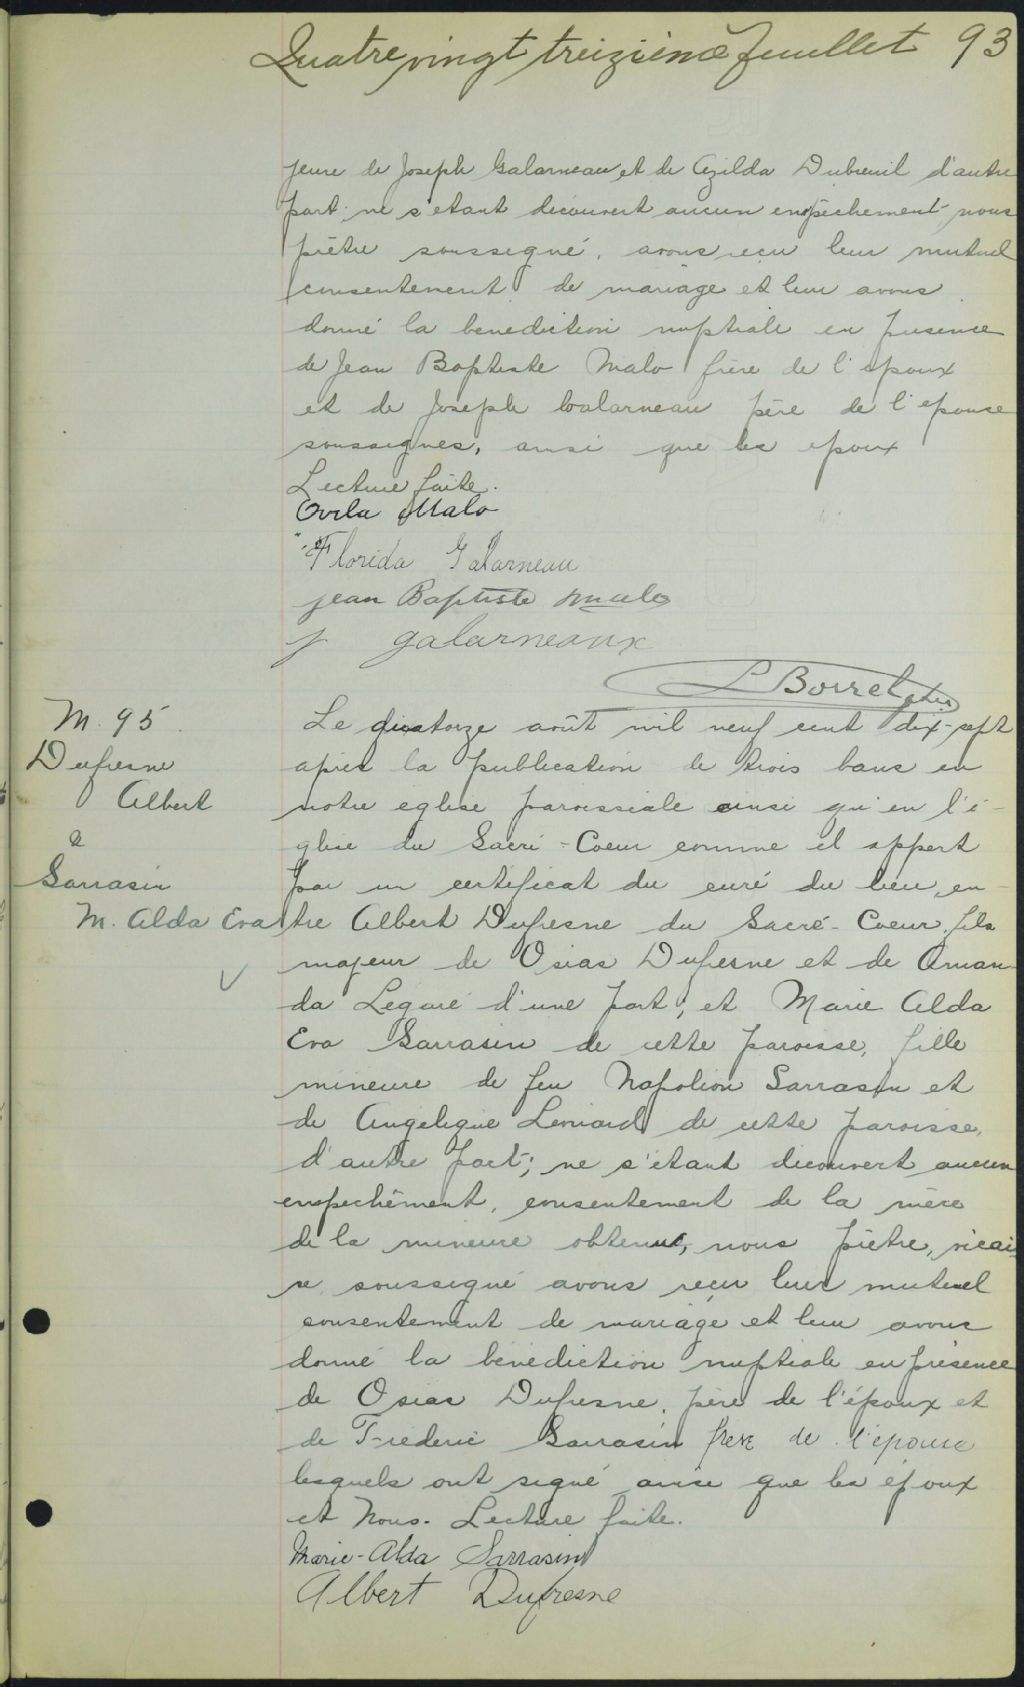 Quatre vingt treizième feuillet 93
jeure de Joseph Galarneau et de Azilda Dubreuil d'autre
part; ne s'etant decouvert aucun empêchement nous
prêtre soussigné, avons reçu leur mutuel
consentement de mariage et leur avons
donné la benediction nuptiale en presence
de Jean Baptiste Malo frère de l'epoux
et de Joseph Galarneau père de l'epouse
soussignes, ainsi que les epoux
Lecture faite.
Ovila Malo
Florida Galarneau
jean Baptiste malo
J galarneaux
L Borrel ptre
M. 95
Dufresne
Albert
&
Sarrasin
M. Alda Eva
Le quatorze août mil neuf cent dix-sept
après la publication de trois bans en
notre église paroissiale ainsi qu'en l'é-
glise du Sacré-Coeur comme il appert
par un certificat du curé du lieu, en-
tre Albert Dufresne du Sacré-Coeur, fils
majeur de Osias Dufresne et de Aman-
da Légaré d'une part, et Marie Alda
Eva Sarrasin de cette paroisse, fille
mineure de feu Napoléon Sarrasin et
de Angelique Léonard de cette paroisse,
d'autre part; ne s'étant découvert aucun
empechêment, consentement de la mère
de la mineure obtenue, nous prêtre, vicai-
re soussigné avons reçu leur mutuel
consentement de mariage et leur avons
donné la bénédiction nuptiale en présence
de Osias Dufresne, père de l'époux et
de Frederic Sarrasin frere de l'épouse
lesquels ont signé ainsi que les époux
et Nous. Lecture faite.
Marie-Alda Sarrasin
Albert Dufresne